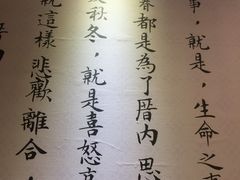 事，就是，生命之
春都是為了厝內思
秋冬，就是喜怒哀
就這樣悲歡離合，